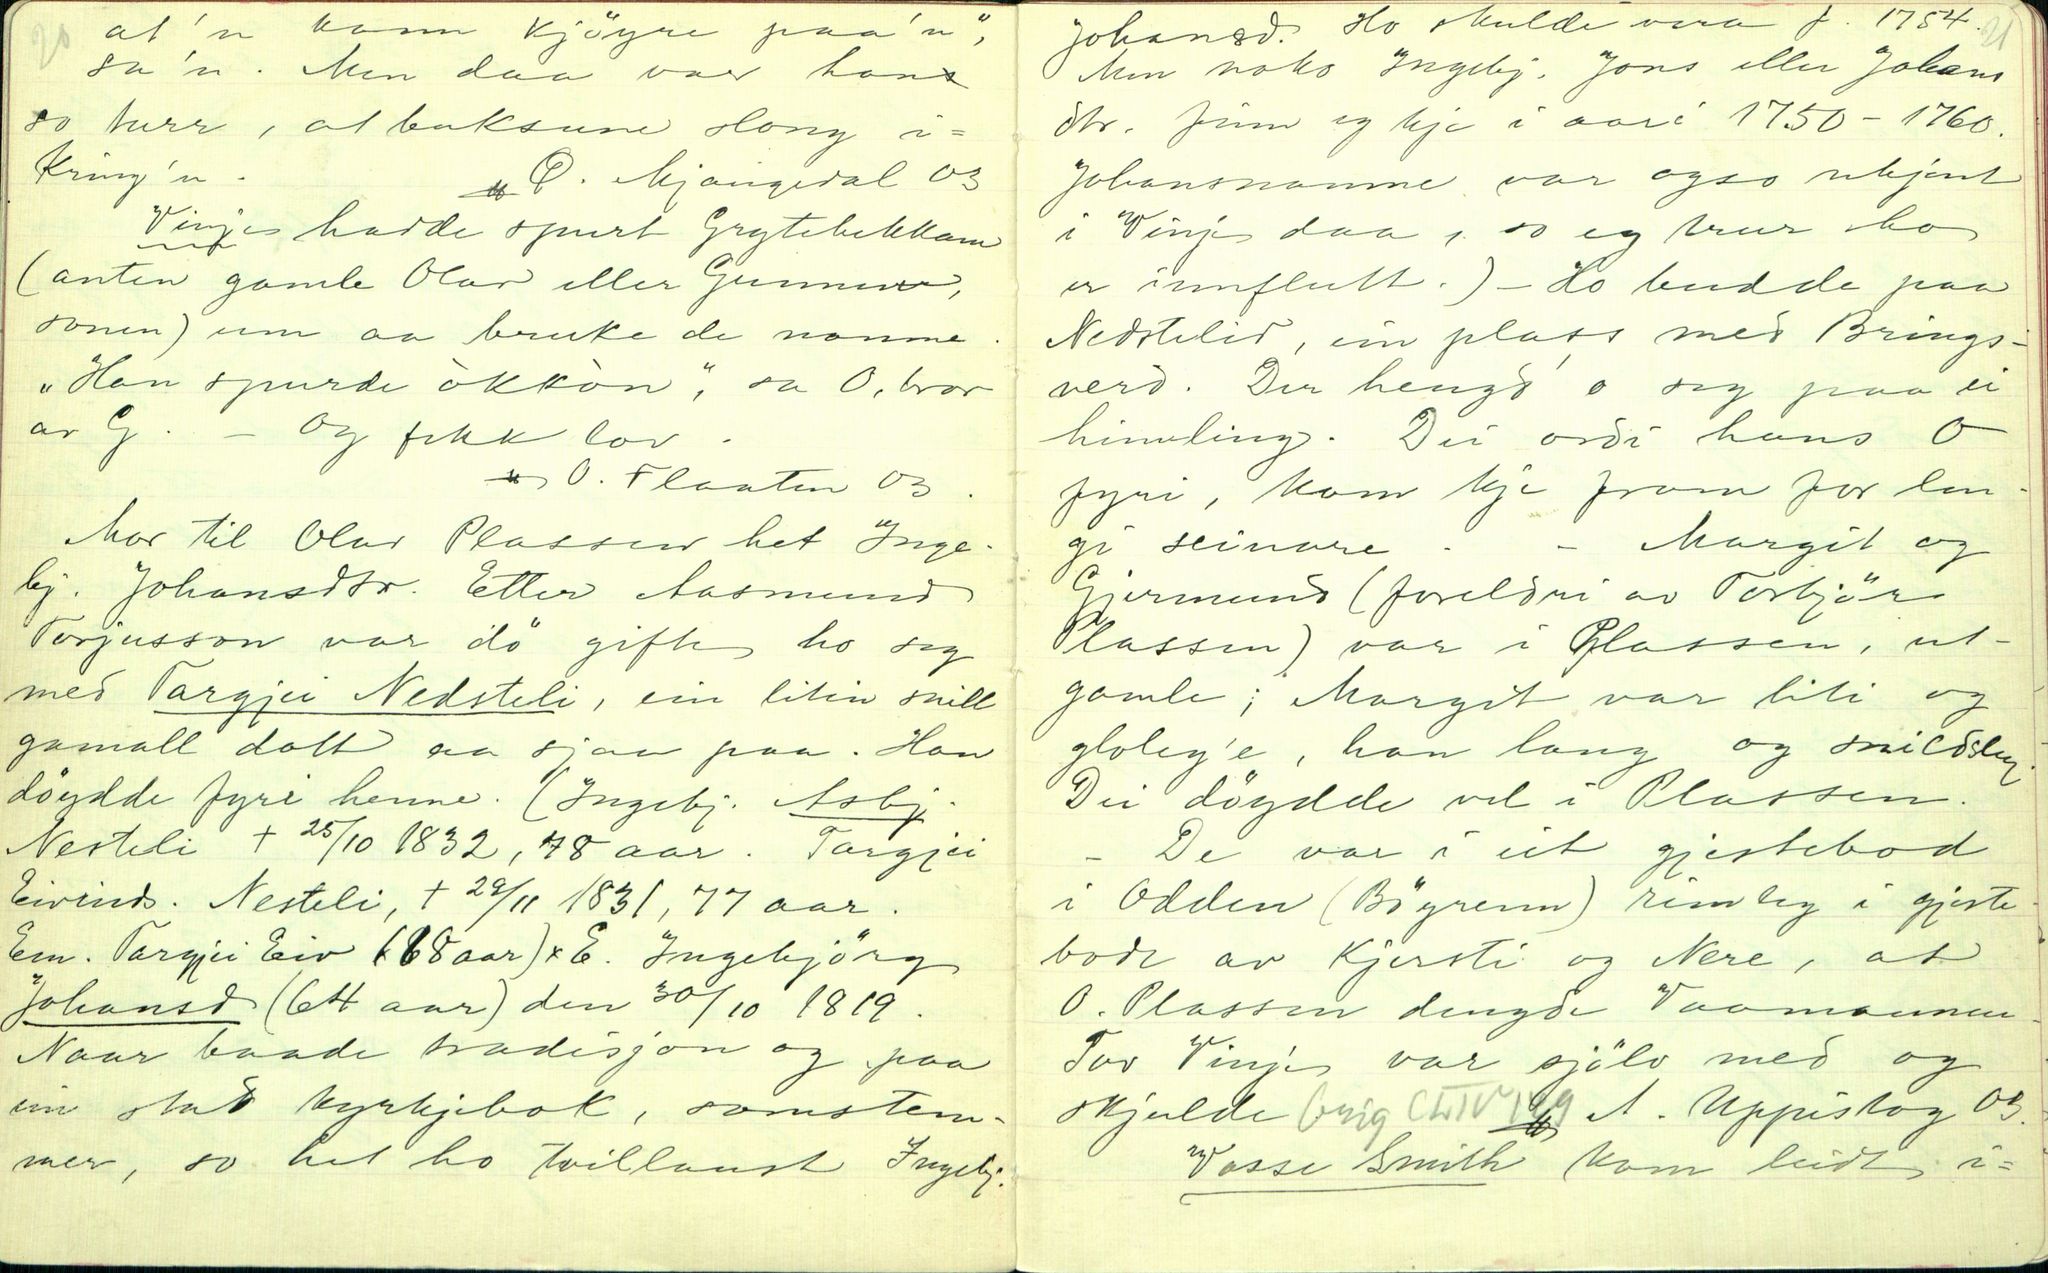 20
at'n kann kjöyre paa'n",
sa'n. Men daa var han
so turr, at buksune slong i=
kring'n.
O. Mjaugedal 03
Vinje hadde spurt Grytebekkan
(anten gamle Olav eller Gunnar,
sonen) um aa bruke de namne.
"Han spurde òkkòn", sa O, bror
av G. – Og fekk lov.
O. Flaaten 03.
Mor til Olav Plassen het Inge-
bj. Johansdtr. Etter Aasmund
Torjusson var dö gifte ho seg
med Targjei Nedsteli, ein liten snill
gamall dott aa sjaa paa. Han
döydde fyri henne. (Ingebj. Asbj.
Nesteli + 25/10 1832, 78 aar. Targjei
Eivinds. Nesteli, + 29/11 1831, 77 aar.
Em. Targjei Eiv (68 aar) x E. Ingebjörg
Johansd (64 aar) den 30/10 1819.
Naar baade tradisjon og paa
ein stad kyrkjebok, samstem-
mer, so het ho tvillaust Ingebj.
21
Johansd. Ho skulde vera f. 1754.
Men noko Ingebj. Jons eller Johans
dtr. finn eg kje i aari 1750-1760.
Johansnamne var ogso ukjent
i Vinje daa, so eg trur ho
er innflutt.) – Ho budde paa
Nedstelid, ein plass med Brings-
verd. Der hengd' o seg paa ei
himling. Dei ordi hans O
fyri, kom kje fram for len-
gi seinare. – Margit og
Gjermund (foreldri av Torbjör
Plassen) var i Plassen, ut-
gamle; Margit var liti og
gloleg'e, han lang og smildsleg.
Dei döydde vel i Plassen.
– De var i eit gjestebod
i Odden (Böyrenn) rimleg i gjeste-
bode av Kjersti og Nere, at
O. Plassen dengde Vaamannen.
Tov Vinje var sjölv med og
skjulde Orig CLIV 199 A. Uppistog 03.
Vasse Smith kom leidt i=